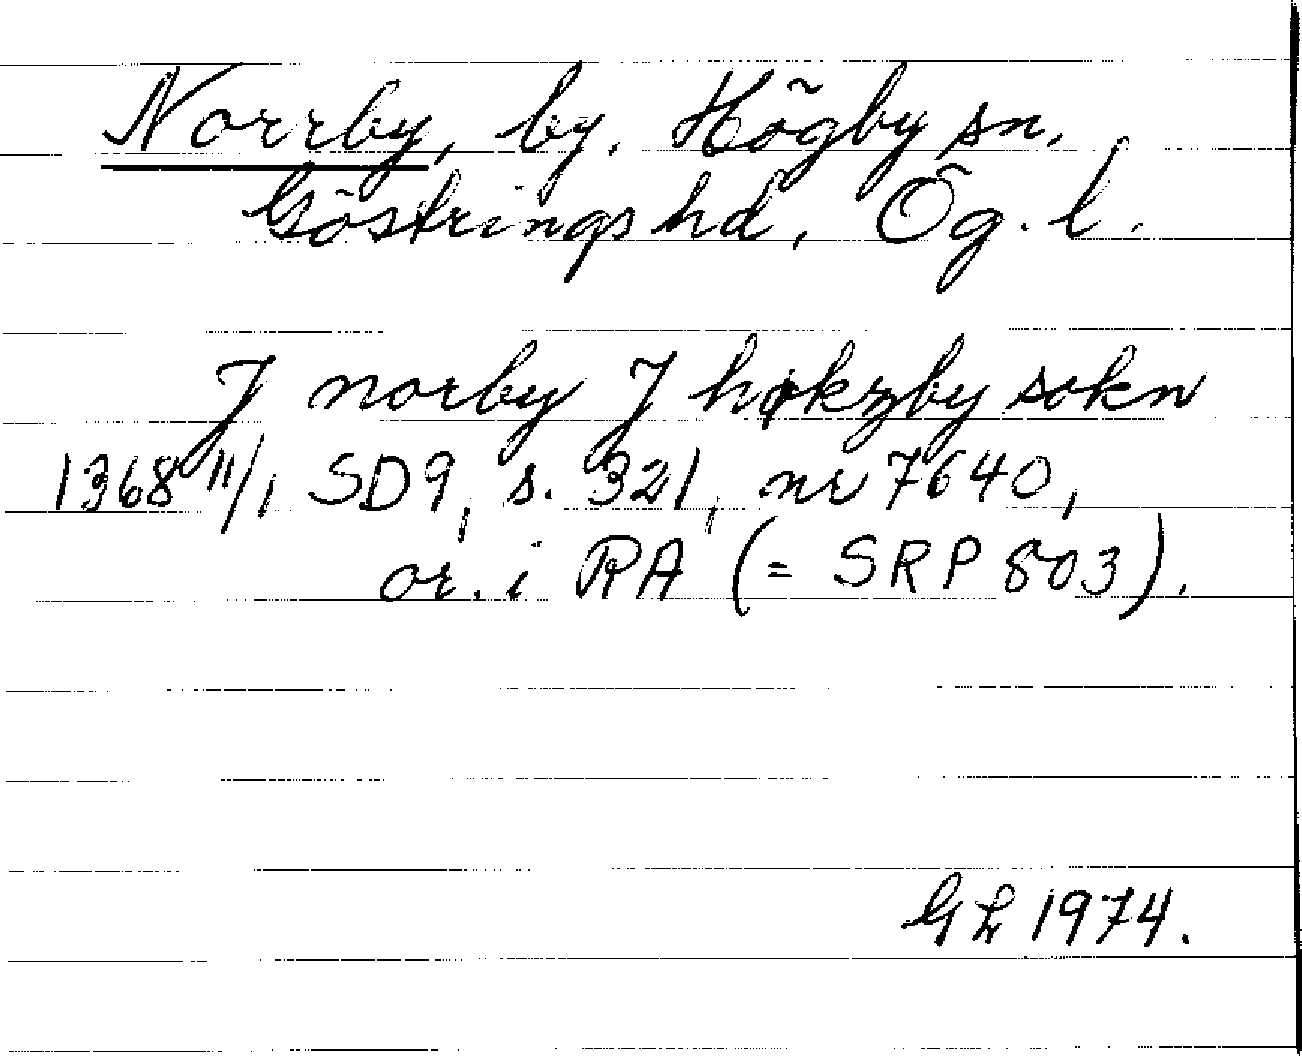 Norrby, by. Högby sn.
Göstrings hd, Ög. l.
J norby J høkzby sokn
1368 11/1 SD9, s. 321, nr 7640,
or. i RA (= SRP 803).
GL 1974.